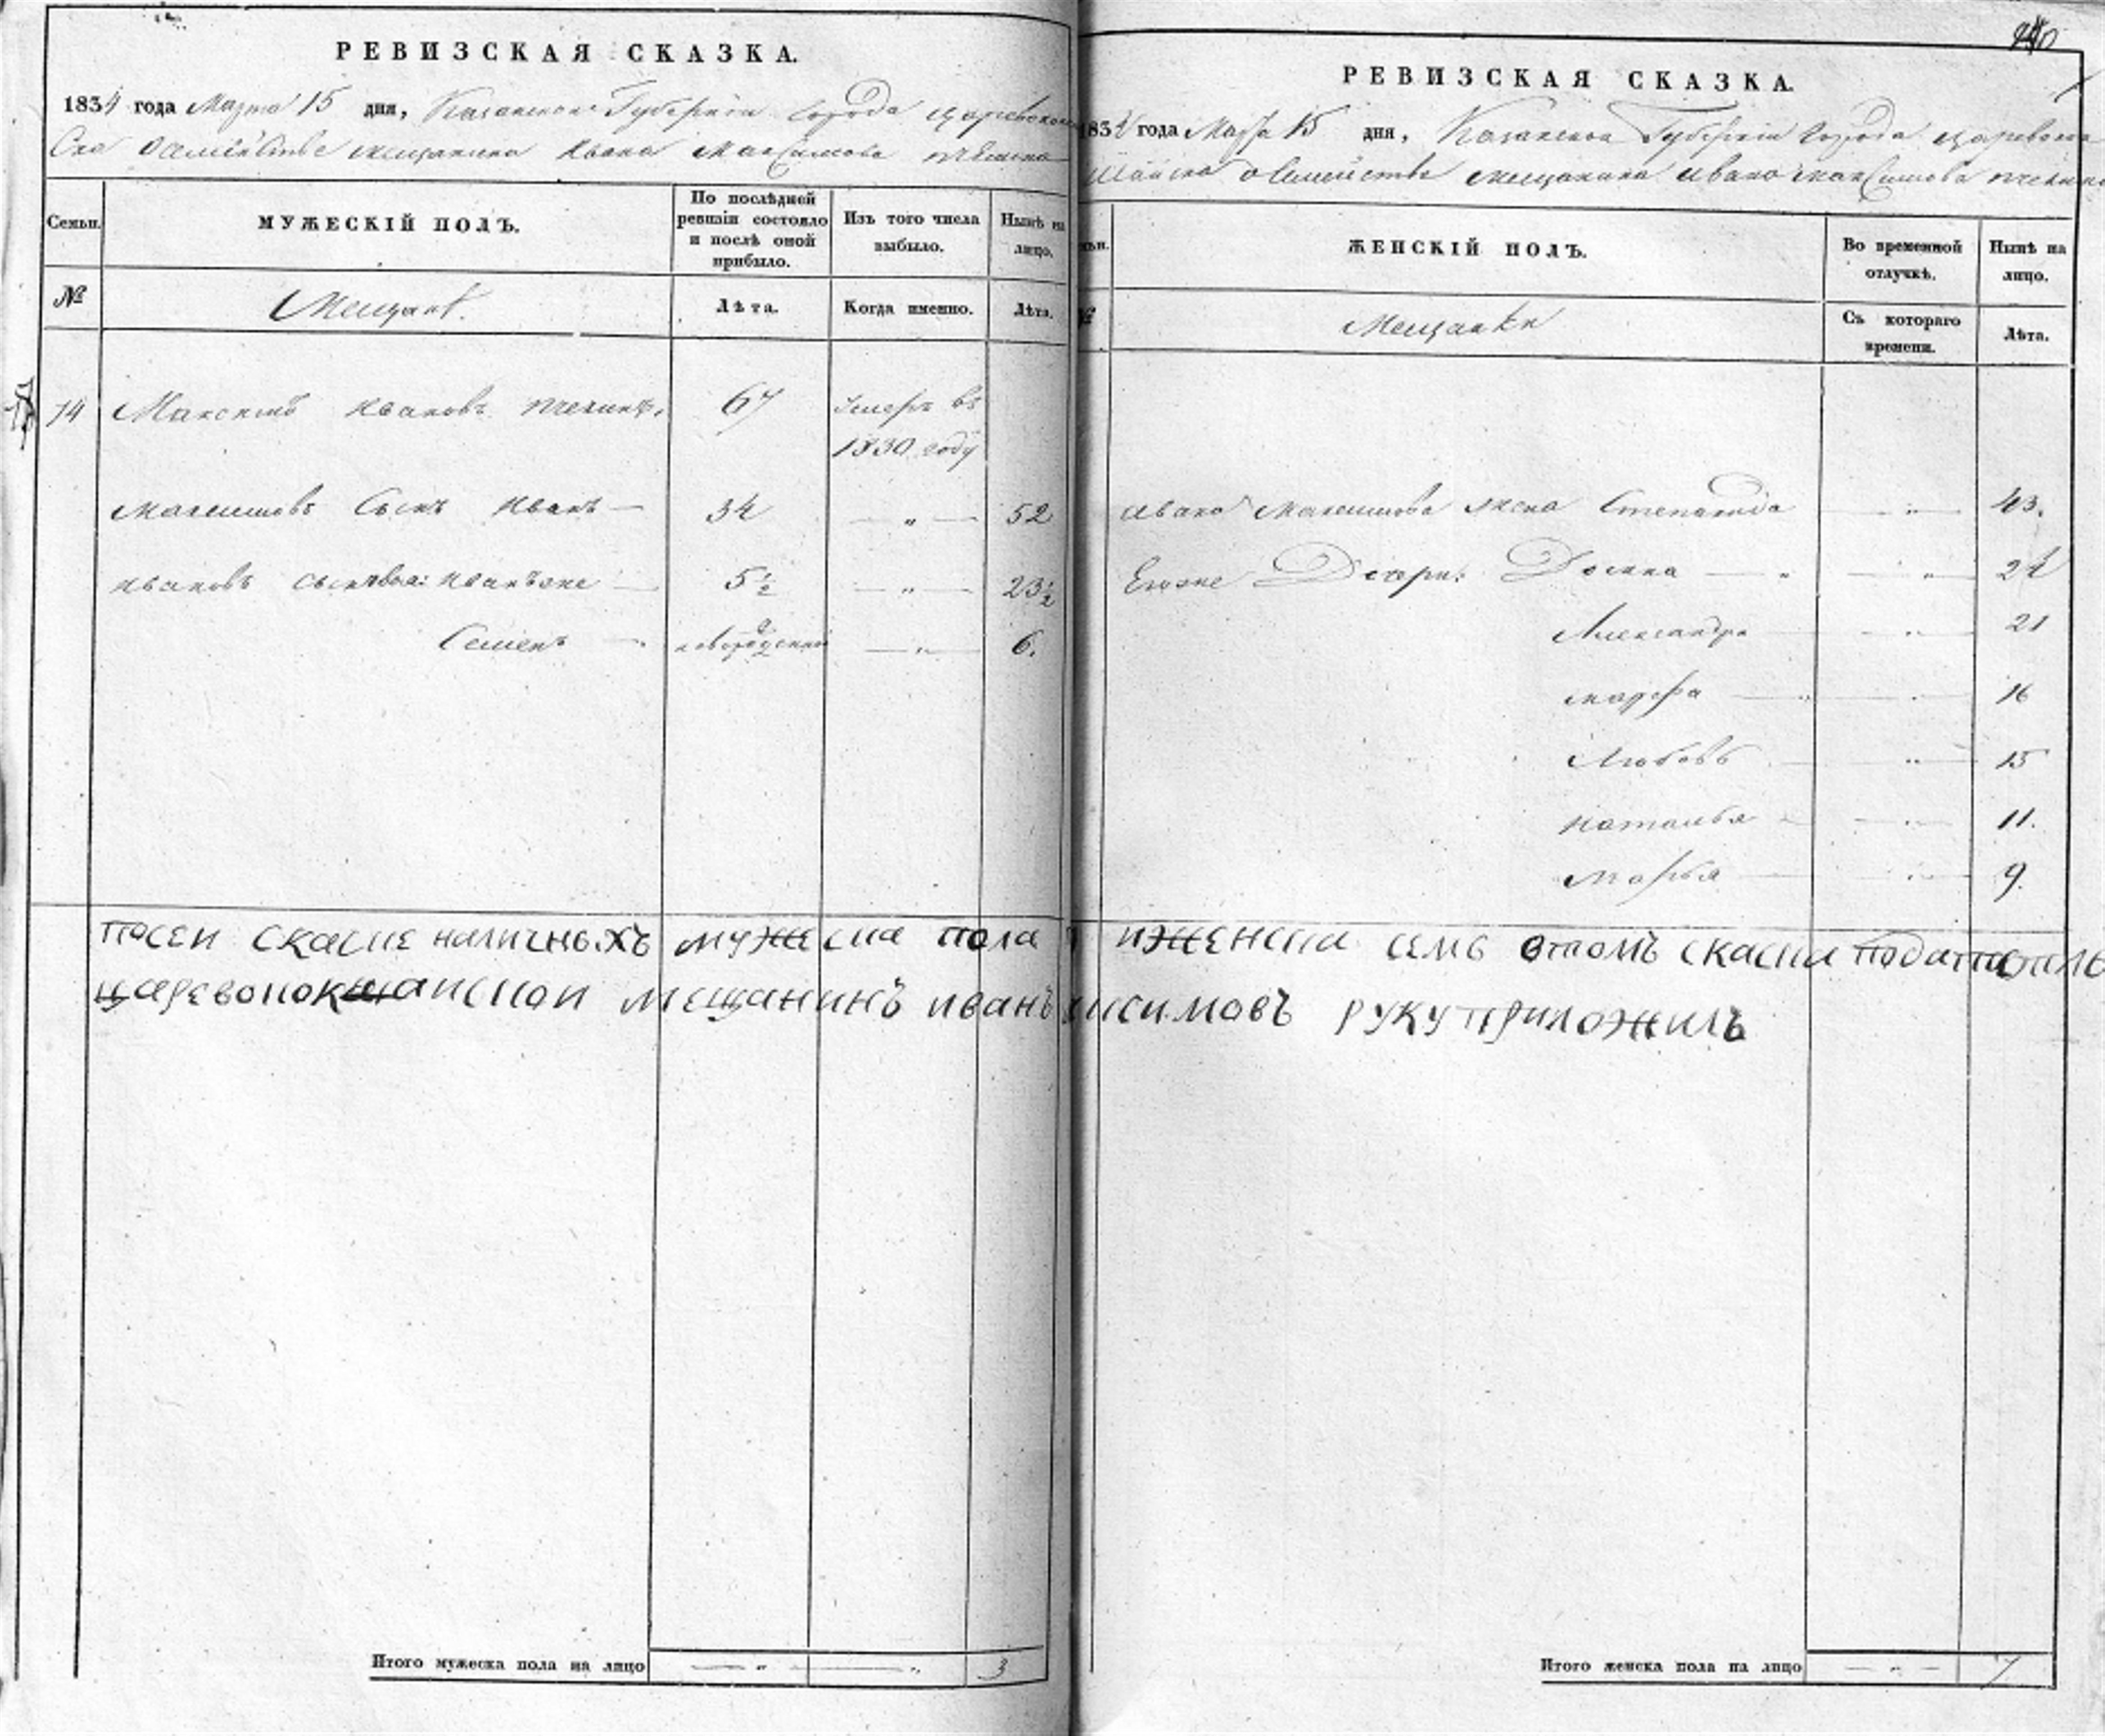 РЕВИЗСКАЯ СКАЗКА.
1834 года Марта 15 дня, Казанской Губернии города Царевококшай
Ска о семействе мещанина Ивана Максимова Пчелина
Семьи.
МУЖЕСКІЙ ПОЛЪ.
По послѣдней ревизіи состояло и послѣ оной прибыло.
Изъ того числа выбыло.
Нынѣ на лицо.
№
Мещане.
Лѣта.
Когда именно.
Лѣта.
14 Максимъ Ивановъ Пчелинъ. 67 Умеръ въ
1830 году
Максимовъ Сынъ Иванъ — 34 — „ — 52
Ивановъ сыновья: Иванъ же — 5½ — „ — 23½
Семенъ — новорожденный — „ — 6.
посеи скаске наличныхъ мужеска пола
царевококшаискои мещанинъ иванъ
Итого мужеска пола на лицо — „ — „ 3
240
РЕВИЗСКАЯ СКАЗКА.
1834 года Марта 15 дня, Казанской Губернии города Царевокок
шайска о семействе мещанина Ивана Максимова Пчелина
ЖЕНСКІЙ ПОЛЪ.
Во временной отлучкѣ.
Нынѣ на лицо.
№
Мещанки
Съ котораго времени.
Лѣта.
Ивана Максимова жена Степанида — „ — 43.
Егоже Дочери: — „ — „ — 24
Александра — „ — 21
Марфа — „ — 16
Любовь — „ — 15
Наталья — „ — 11.
Марья — „ — 9.
иженска семь втомъ скаска
ксимовъ руку приложилъ
Итого женска пола на лицо — „ — 7